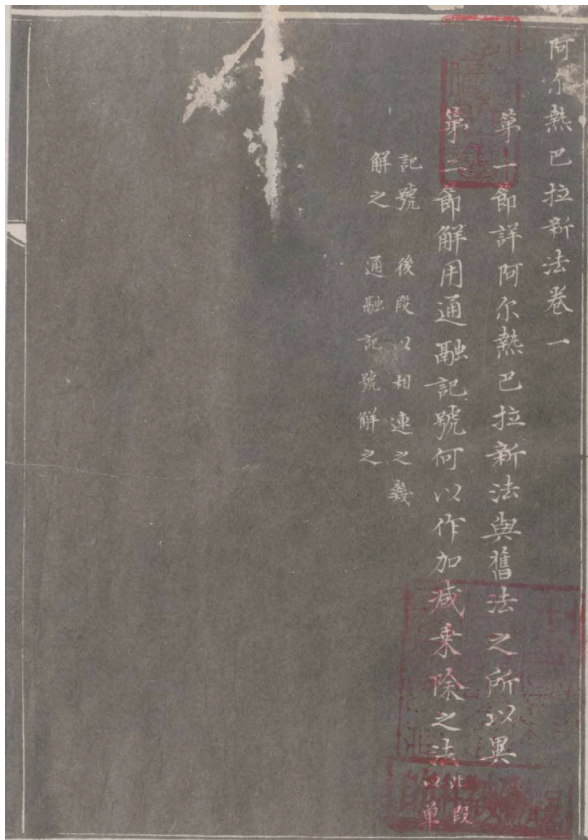 阿尔熱巴拉新法卷一
第一節詳阿尔熱巴拉新法與舊法之所以異
第二節解用通融記號何以作加減乘除之法
此段
以单
記號
解之
後段以相連之幾
通融記號解之